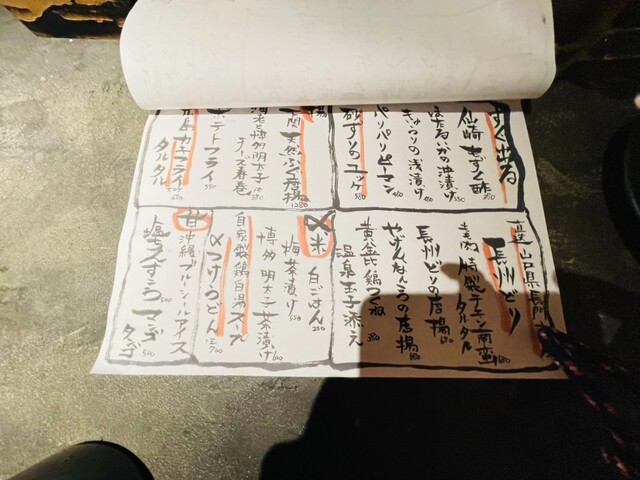 すぐ出る
仙崎 もずく酢
ほたるいかの沖漬け 450
きゅうりの浅漬け 350
パリパリピーマン
砂ずりのユッケ 550
下関 天然ふぐ唐揚 1280
海老と博多明太子
チーズ春巻
ポテトフライ 550
カキフライ
タルタル
直送 山口県 長門
長州どり
特製チキン南蛮
タルタル
長州どりの唐揚
やげんなんこつの唐揚
黄金比 鶏つくね
温泉玉子添え 380
〆米 白ごはん 250
梅茶漬け 550
博多明太子茶漬け 600
自家製鶏白湯スープ
〆つけうどん
甘 沖縄ブルーシールアイス
塩ちんすこう 500
マンゴー
タンゴ 500